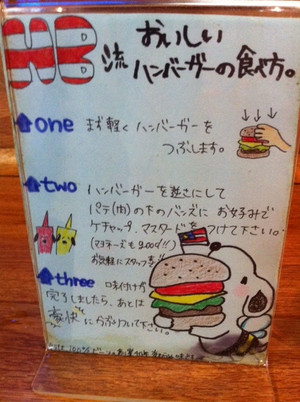 HB流 おいしい
ハンバーガーの食べ方。
one まず軽くハンバーガーを
つぶします。
two ハンバーガーを逆さにして
パテ(肉)の下のバンズにお好みで
ケチャップ、マスタードをつけて下さい。
(マヨネーズもgood!!)
お気軽にスタッフまで!!
three 味付けが
完了しましたら、あとは
豪快にかぶりついて下さい。